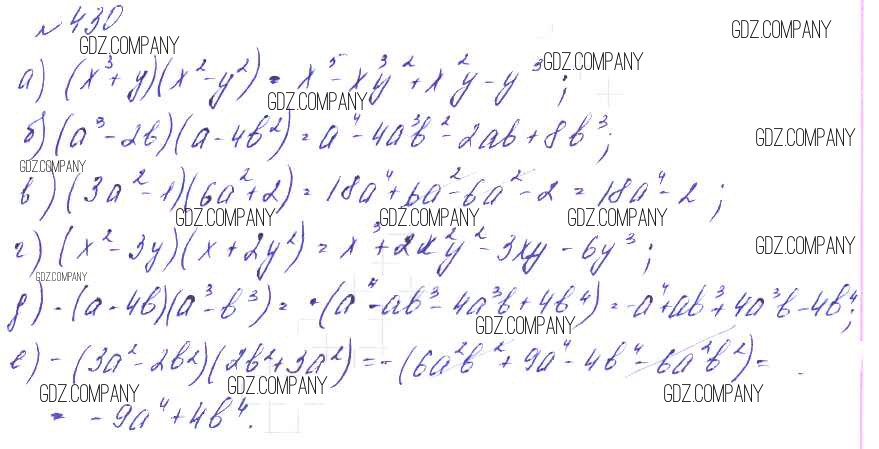 № 430
GDZ.COMPANY GDZ.COMPANY
а) (x³+y)(x²-y²) = x⁵-x³y²+x²y-y³;
GDZ.COMPANY GDZ.COMPANY
б) (a³-2b)(a-4b²) = a⁴-4a³b²-2ab+8b³;
GDZ.COMPANY
GDZ.COMPANY
в) (3a²-1)(6a²+2) = 18a⁴+6a²-6a²-2 = 18a⁴-2;
GDZ.COMPANY GDZ.COMPANY GDZ.COMPANY
г) (x²-3y)(x+2y²) = x³+2x²y²-3xy-6y³;
GDZ.COMPANY
GDZ.COMPANY
д) -(a-4b)(a³-b³) = -(a⁴-ab³-4a³b+4b⁴) = -a⁴+ab³+4a³b-4b⁴;
GDZ.COMPANY
е) -(3a²-2b²)(2b²+3a²) = -(6a²b²+9a⁴-4b⁴-6a²b²) =
GDZ.COMPANY GDZ.COMPANY GDZ.COMPANY
= -9a⁴+4b⁴.